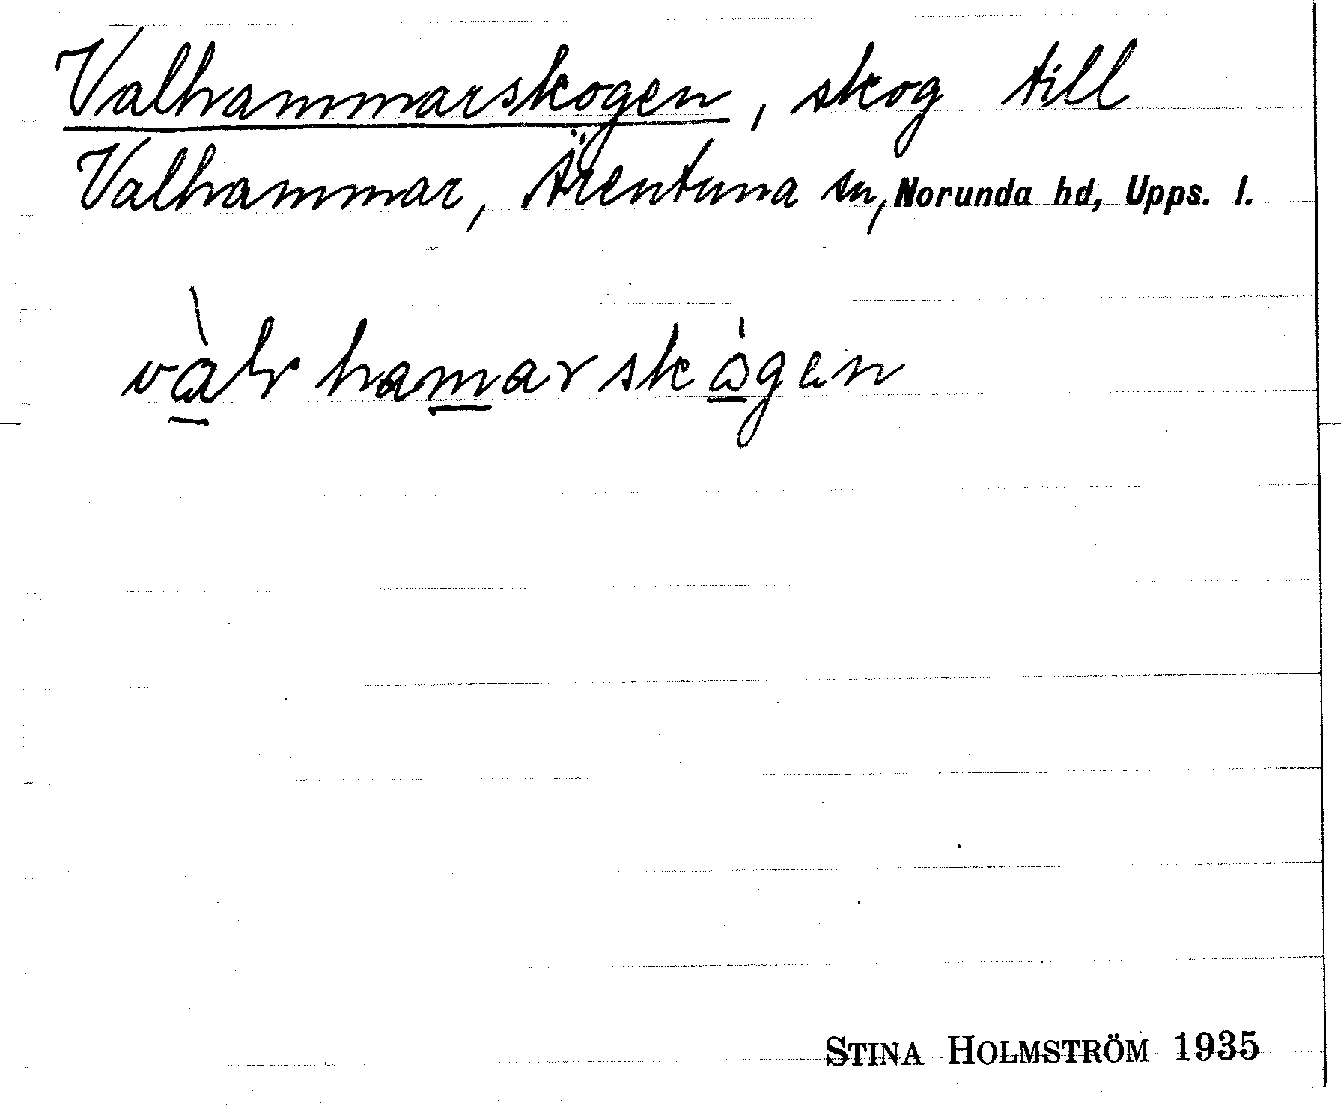 Valhammarskogen, skog till
Valhammar, Ärentuna sn, Norunda hd, Upps. l.
vàlr hamarskógen
STINA HOLMSTRÖM 1935